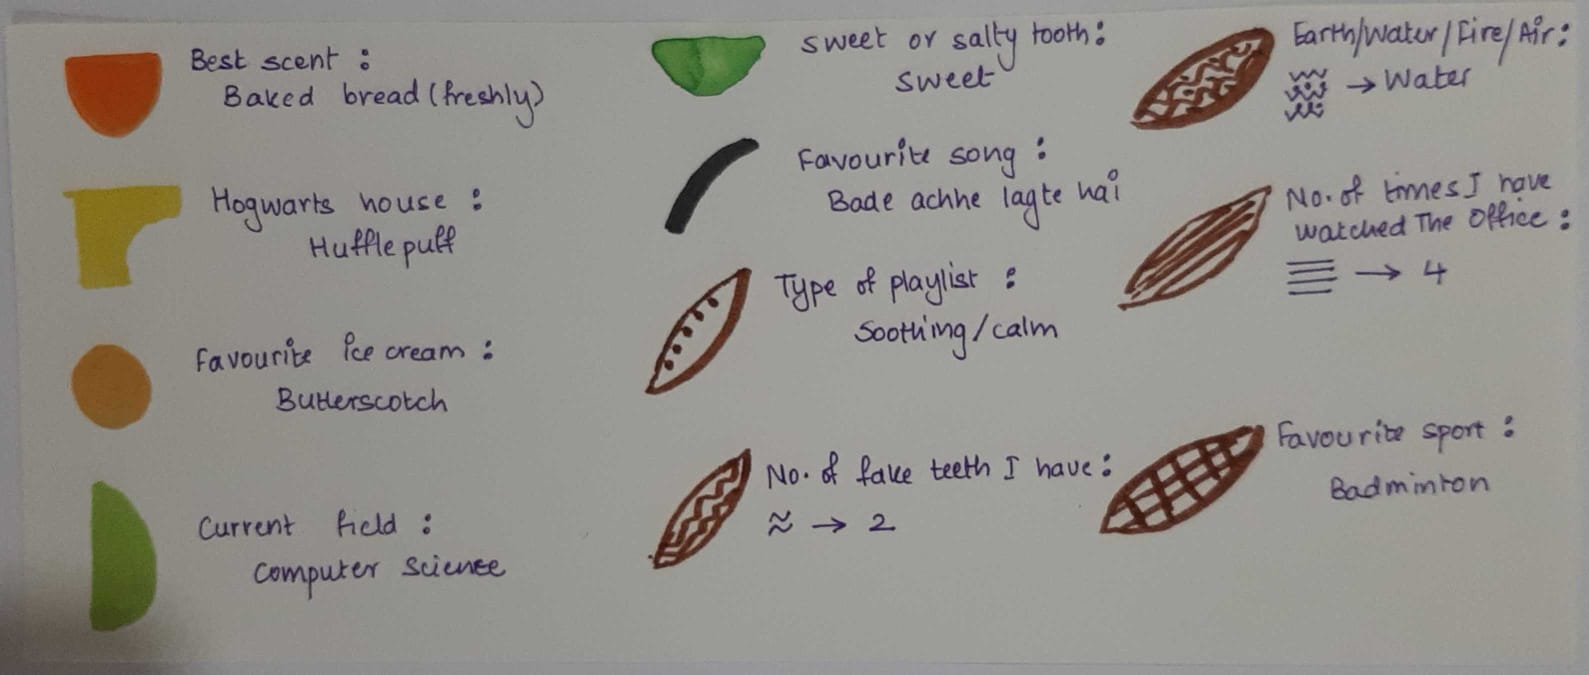 Best scent :
Baked bread (freshly)
Hogwarts house :
Hufflepuff
Favourite ice cream :
Butterscotch
Current field :
Computer Science
Sweet or salty tooth :
Sweet
Favourite song :
Bade achhe lagte hai
Type of playlist :
Soothing/calm
No. of fake teeth I have :
≈ → 2
Earth/Water/Fire/Air :
→ Water
No. of times I have
watched The Office :
→ 4
Favourite sport :
Badminton